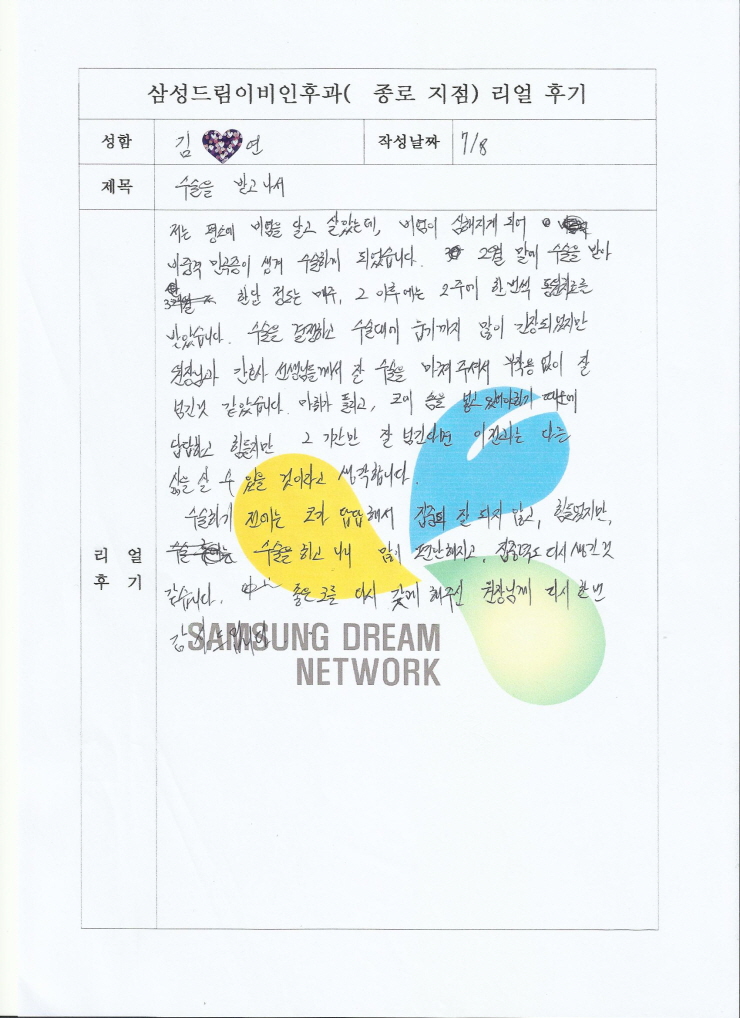 삼성드림이비인후과( 종로 지점) 리얼 후기
성함 김 연 작성날짜 7/8
제목 수술을 받고 나서
저는 평소에 비염을 앓고 살았는데, 비염이 심해지게 되어
비중격 만곡증이 생겨 수술하게 되었습니다. 2월 말에 수술을 받아
한달 정도는 매주, 그 이후에는 2주에 한번씩 통원치료를
받았습니다. 수술을 결정하고 수술대에 눕기까지 많이 긴장되었지만
원장님과 간호사 선생님들께서 잘 수술을 마쳐 주셔서 부작용 없이 잘
넘긴것 같았습니다. 마취가 풀리고, 코에 솜을 넣고 있어야하기 때문에
답답하고 힘들지만 그 기간만 잘 넘긴다면 이전과는 다른
삶을 살 수 있을 것이라고 생각합니다.
수술하기 전에는 코가 답답해서 집중도 잘 되지 않고, 힘들었지만,
수술을 하고 나니 맘이 편안해지고, 집중력도 다시 생긴것
같습니다. 좋은 코를 다시 갖게 해주신 원장님께 다시 한번
리 얼
후 기
SAMSUNG DREAM
NETWORK